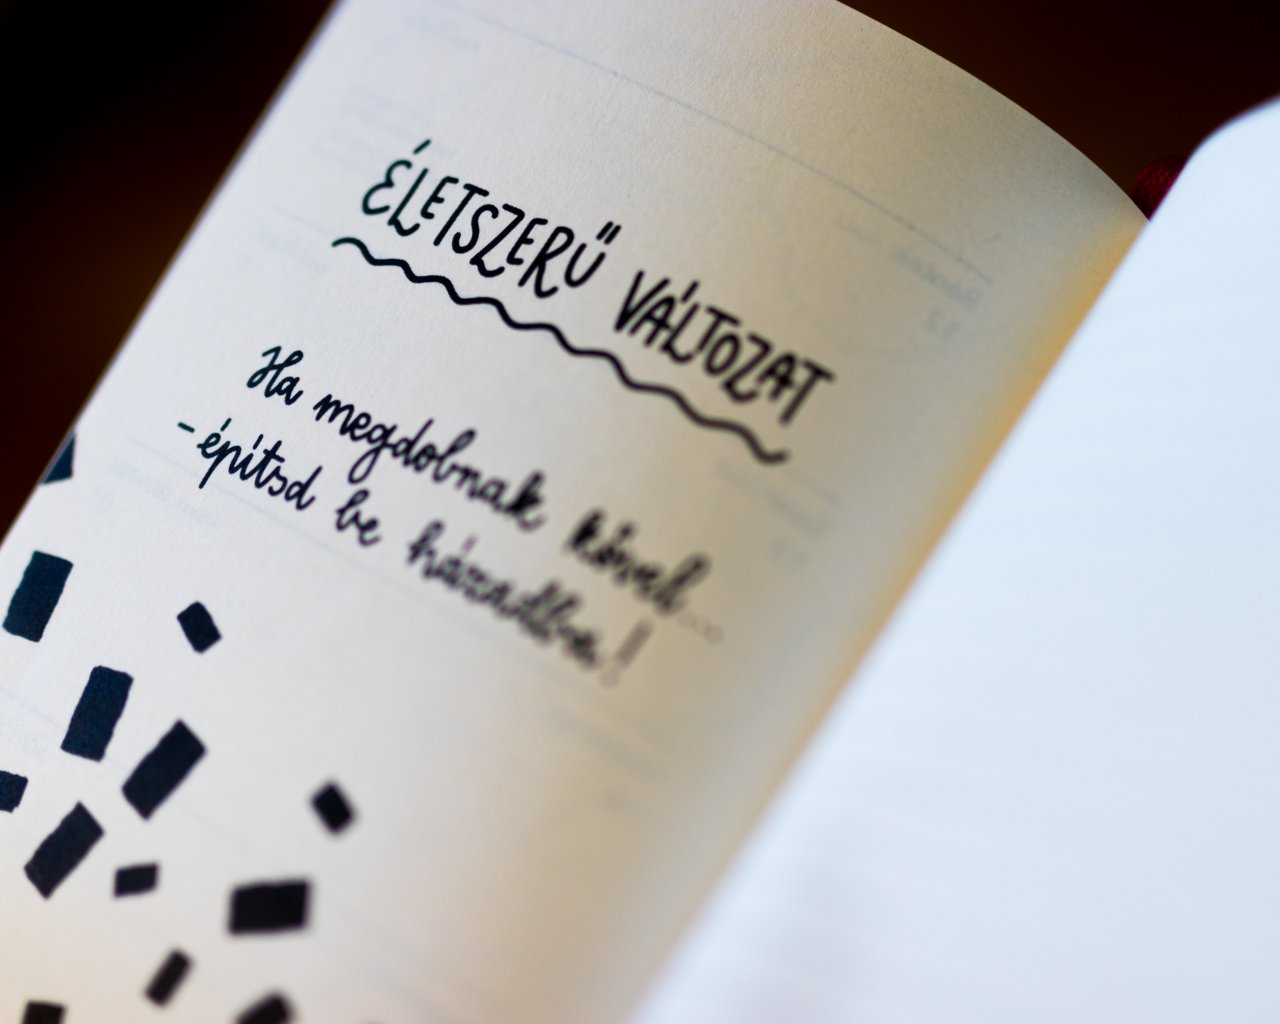 ÉLETSZERŰ VÁLTOZAT
Ha megdobnak kővel...
-építsd be házadba!